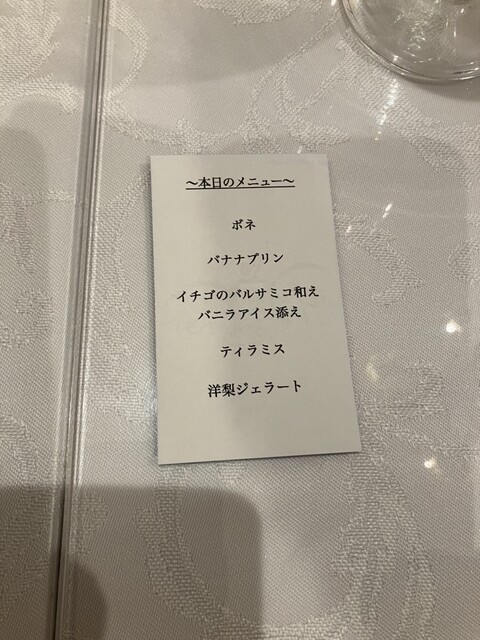 ～本日のメニュー～
ボネ
バナナプリン
イチゴのバルサミコ和え
バニラアイス添え
ティラミス
洋梨ジェラート